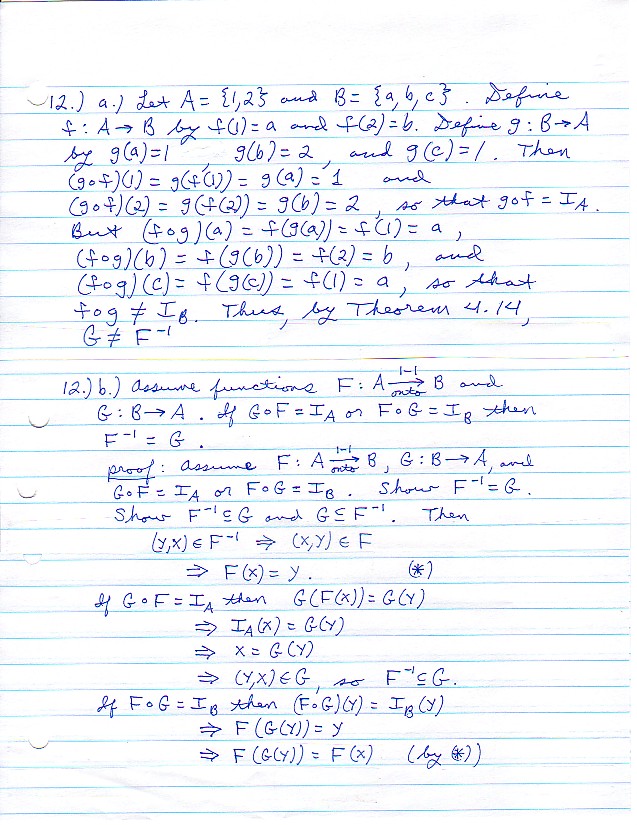 12.) a.) Let A = {1,2} and B = {a,b,c}. Define
f: A → B by f(1)=a and f(2)=b. Define g: B→A
by g(a)=1, g(b)=2, and g(c)=1. Then
(g∘f)(1) = g(f(1)) = g(a) = 1 and
(g∘f)(2) = g(f(2)) = g(b) = 2, so that g∘f = I_A.
But (f∘g)(a) = f(g(a)) = f(1) = a,
(f∘g)(b) = f(g(b)) = f(2) = b, and
(f∘g)(c) = f(g(c)) = f(1) = a, so that
f∘g ≠ I_B. Thus, by Theorem 4.14,
G ≠ F⁻¹
12.) b.) Assume functions F: A \xrightarrow[onto]{1-1} B and
G: B→A. If G∘F = I_A or F∘G = I_B then
F⁻¹ = G.
proof: Assume F: A \xrightarrow[onto]{1-1} B, G: B→A, and
G∘F = I_A or F∘G = I_B. Show F⁻¹=G.
Show F⁻¹⊆G and G⊆F⁻¹. Then
(y,x)∈F⁻¹ ⇒ (x,y)∈F
⇒ F(x)=y. (*)
If G∘F = I_A then G(F(x)) = G(y)
⇒ I_A(x) = G(y)
⇒ x = G(y)
⇒ (y,x)∈G, so F⁻¹⊆G.
If F∘G = I_B then (F∘G)(y) = I_B(y)
⇒ F(G(y)) = y
⇒ F(G(y)) = F(x) (by *))